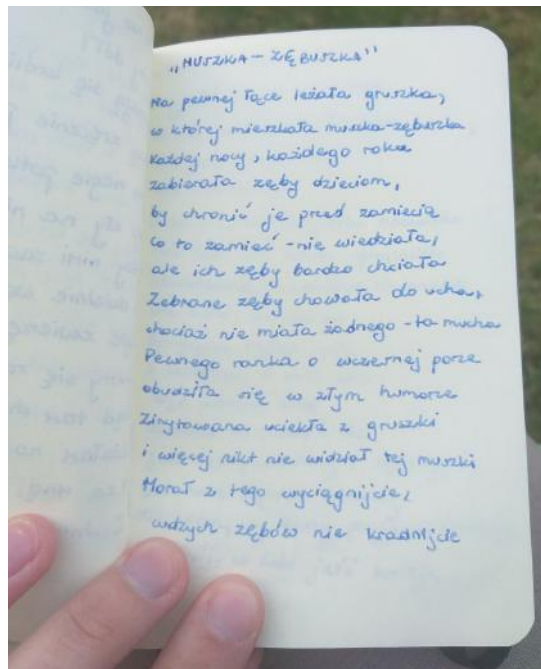 „MUSZKA – ZĘBUSZKA"
Na pewnej łące leżała gruszka,
w której mieszkała muszka-zębuszka
każdej nocy, każdego roku
zabierała zęby dzieciom,
by chronić je przed zamiecią
co to zamieć - nie wiedziała,
ale ich zęby bardzo chciała
Zebrane zęby chowała do ucha,
chociaż nie miała żadnego - ta mucha
Pewnego ranka o wczesnej porze
obudziła się w złym humorze
Zirytowana uciekła z gruszki
i więcej nikt nie widział tej muszki
Morał z tego wyciągnijcie,
cudzych zębów nie kradnijcie